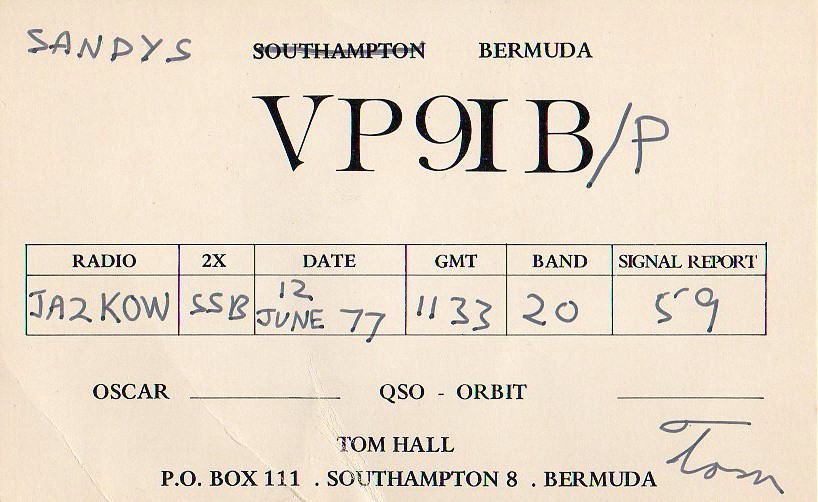 SANDYS SOUTHAMPTON BERMUDA
VP9IB/P
RADIO 2X DATE GMT BAND SIGNAL REPORT
JA2KOW SSB 12 JUNE 77 1133 20 59
OSCAR QSO - ORBIT
TOM HALL
Tom
P.O. BOX 111 . SOUTHAMPTON 8 . BERMUDA